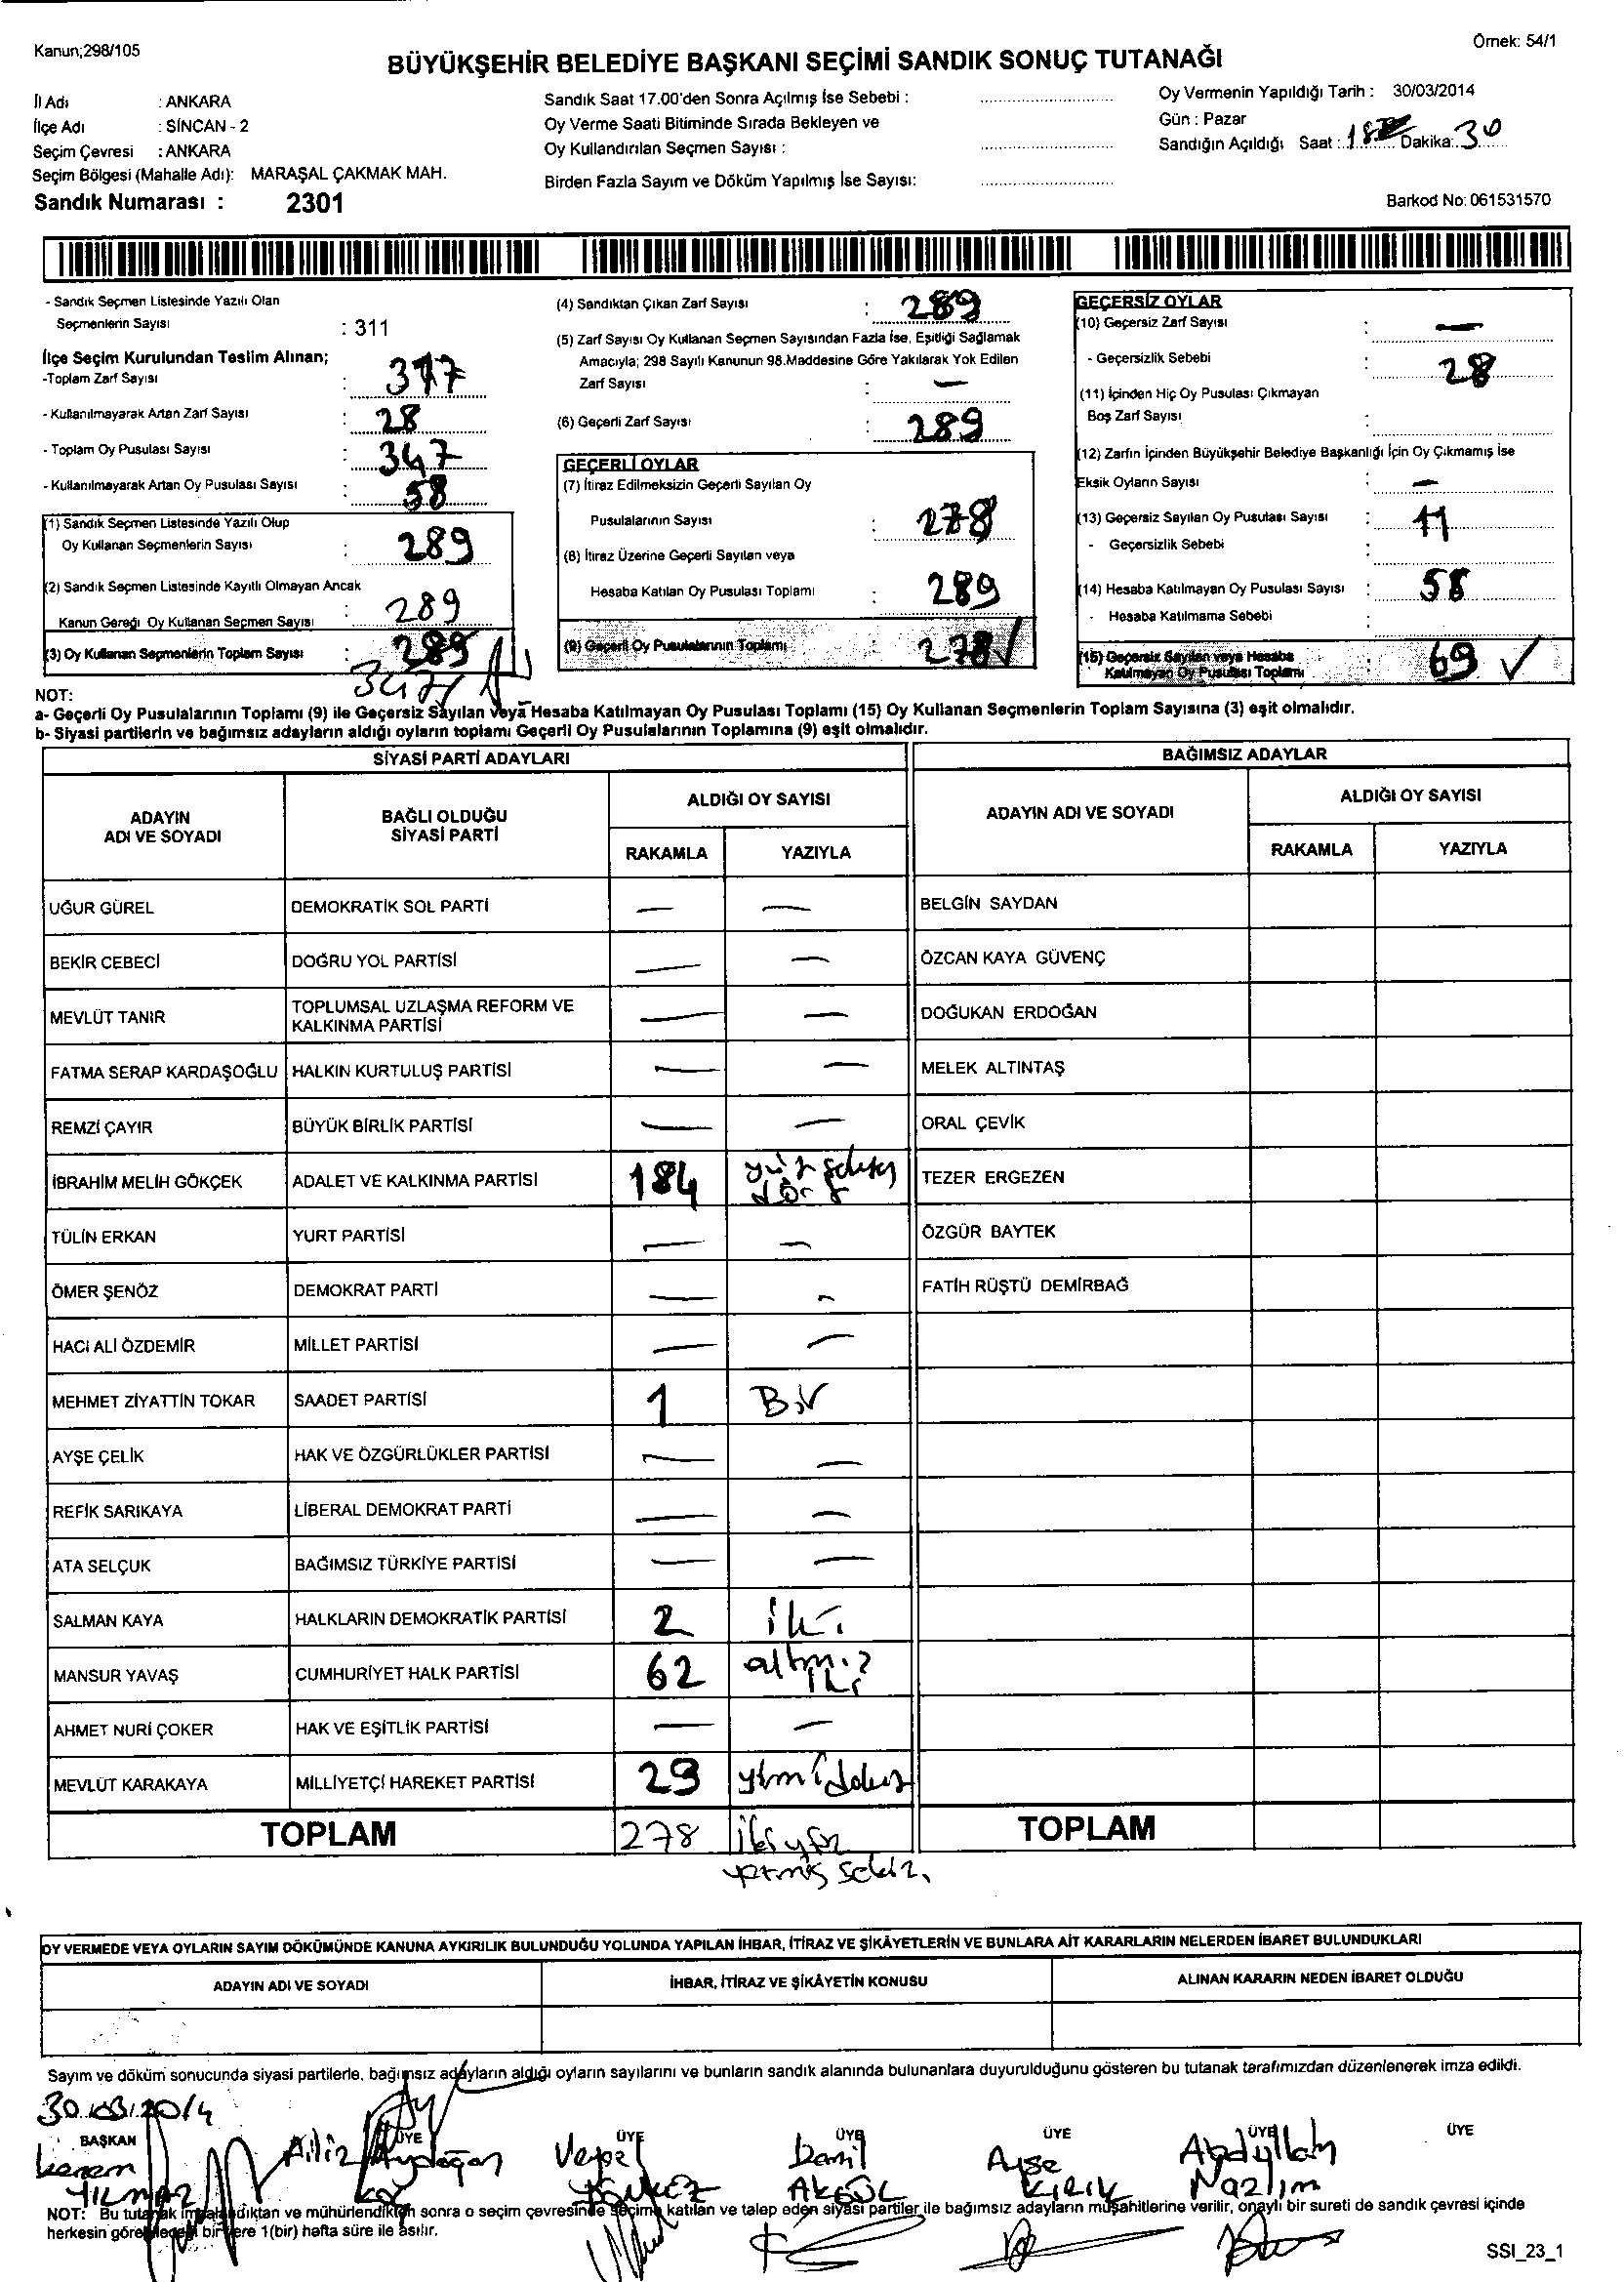 Kanun;298/105
Örnek: 54/1
BÜYÜKŞEHİR BELEDİYE BAŞKANI SEÇİMİ SANDIK SONUÇ TUTANAĞI
İl Adı : ANKARA
İlçe Adı : SİNCAN - 2
Seçim Çevresi : ANKARA
Seçim Bölgesi (Mahalle Adı): MARAŞAL ÇAKMAK MAH.
Sandık Numarası : 2301
Sandık Saat 17.00'den Sonra Açılmış İse Sebebi :
Oy Verme Saati Bitiminde Sırada Bekleyen ve
Oy Kullandırılan Seçmen Sayısı :
Birden Fazla Sayım ve Döküm Yapılmış İse Sayısı:
Oy Vermenin Yapıldığı Tarih : 30/03/2014
Gün : Pazar
Sandığın Açıldığı Saat : 18 Dakika: 30
Barkod No: 061531570
- Sandık Seçmen Listesinde Yazılı Olan
Seçmenlerin Sayısı : 311
İlçe Seçim Kurulundan Teslim Alınan;
-Toplam Zarf Sayısı : 317
- Kullanılmayarak Artan Zarf Sayısı : 28
- Toplam Oy Pusulası Sayısı : 347
- Kullanılmayarak Artan Oy Pusulası Sayısı : 58
(1) Sandık Seçmen Listesinde Yazılı Olup
Oy Kullanan Seçmenlerin Sayısı : 289
(2) Sandık Seçmen Listesinde Kayıtlı Olmayan Ancak
Kanun Gereği Oy Kullanan Seçmen Sayısı : 289
(3) Oy Kullanan Seçmenlerin Toplam Sayısı : 289
347
(4) Sandıktan Çıkan Zarf Sayısı : 289
(5) Zarf Sayısı Oy Kullanan Seçmen Sayısından Fazla İse, Eşitliği Sağlamak
Amacıyla; 298 Sayılı Kanunun 98.Maddesine Göre Yakılarak Yok Edilen
Zarf Sayısı : —
(6) Geçerli Zarf Sayısı : 289
GEÇERLİ OYLAR
(7) İtiraz Edilmeksizin Geçerli Sayılan Oy
Pusulalarının Sayısı : 278
(8) İtiraz Üzerine Geçerli Sayılan veya
Hesaba Katılan Oy Pusulası Toplamı : 289
(9) Geçerli Oy Pusulalarının Toplamı : 278 ✓
GEÇERSİZ OYLAR
(10) Geçersiz Zarf Sayısı : —
- Geçersizlik Sebebi : 28
(11) İçinden Hiç Oy Pusulası Çıkmayan
Boş Zarf Sayısı :
(12) Zarfın İçinden Büyükşehir Belediye Başkanlığı İçin Oy Çıkmamış İse
Eksik Oyların Sayısı : —
(13) Geçersiz Sayılan Oy Pusulası Sayısı : 11
- Geçersizlik Sebebi :
(14) Hesaba Katılmayan Oy Pusulası Sayısı : 58
- Hesaba Katılmama Sebebi :
(15) Geçersiz Sayılan veya Hesaba
Katılmayan Oy Pusulası Toplamı : 69 ✓
NOT:
a- Geçerli Oy Pusulalarının Toplamı (9) ile Geçersiz Sayılan veya Hesaba Katılmayan Oy Pusulası Toplamı (15) Oy Kullanan Seçmenlerin Toplam Sayısına (3) eşit olmalıdır.
b- Siyasi partilerin ve bağımsız adayların aldığı oyların toplamı Geçerli Oy Pusulalarının Toplamına (9) eşit olmalıdır.
SİYASİ PARTİ ADAYLARI
BAĞIMSIZ ADAYLAR
ADAYIN ADI VE SOYADI
BAĞLI OLDUĞU SİYASİ PARTİ
ALDIĞI OY SAYISI
RAKAMLA YAZIYLA
ADAYIN ADI VE SOYADI
ALDIĞI OY SAYISI
RAKAMLA YAZIYLA
UĞUR GÜREL DEMOKRATİK SOL PARTİ — — BELGİN SAYDAN
BEKİR CEBECİ DOĞRU YOL PARTİSİ — — ÖZCAN KAYA GÜVENÇ
MEVLÜT TANIR TOPLUMSAL UZLAŞMA REFORM VE KALKINMA PARTİSİ — — DOĞUKAN ERDOĞAN
FATMA SERAP KARDAŞOĞLU HALKIN KURTULUŞ PARTİSİ — — MELEK ALTINTAŞ
REMZİ ÇAYIR BÜYÜK BİRLİK PARTİSİ — — ORAL ÇEVİK
İBRAHİM MELİH GÖKÇEK ADALET VE KALKINMA PARTİSİ 184 yüz seksen dört TEZER ERGEZEN
TÜLİN ERKAN YURT PARTİSİ — — ÖZGÜR BAYTEK
ÖMER ŞENÖZ DEMOKRAT PARTİ — — FATİH RÜŞTÜ DEMİRBAĞ
HACI ALİ ÖZDEMİR MİLLET PARTİSİ — —
MEHMET ZİYATTİN TOKAR SAADET PARTİSİ 1 Bir
AYŞE ÇELİK HAK VE ÖZGÜRLÜKLER PARTİSİ — —
REFİK SARIKAYA LİBERAL DEMOKRAT PARTİ — —
ATA SELÇUK BAĞIMSIZ TÜRKİYE PARTİSİ — —
SALMAN KAYA HALKLARIN DEMOKRATİK PARTİSİ 2 iki
MANSUR YAVAŞ CUMHURİYET HALK PARTİSİ 62 altmış iki
AHMET NURİ ÇOKER HAK VE EŞİTLİK PARTİSİ — —
MEVLÜT KARAKAYA MİLLİYETÇİ HAREKET PARTİSİ 29 yirmi dokuz
TOPLAM 278 iki yüz yetmiş sekiz TOPLAM
OY VERMEDE VEYA OYLARIN SAYIM DÖKÜMÜNDE KANUNA AYKIRILIK BULUNDUĞU YOLUNDA YAPILAN İHBAR, İTİRAZ VE ŞİKÂYETLERİN VE BUNLARA AİT KARARLARIN NELERDEN İBARET BULUNDUKLARI
ADAYIN ADI VE SOYADI İHBAR, İTİRAZ VE ŞİKÂYETİN KONUSU ALINAN KARARIN NEDEN İBARET OLDUĞU
Sayım ve döküm sonucunda siyasi partilerle, bağımsız adayların aldığı oyların sayılarını ve bunların sandık alanında bulunanlara duyurulduğunu gösteren bu tutanak tarafımızdan düzenlenerek imza edildi.
30.03.2014
BAŞKAN ÜYE ÜYE ÜYE ÜYE ÜYE ÜYE
Kerem Aydoğan Veysel Kamil Ayşe Abdullah
YILMAZ KOÇ AKGÜL KIRIK Nazlım
NOT: Bu tutanak imzalandıktan ve mühürlendikten sonra o seçim çevresinde seçime katılan ve talep eden siyasi partiler ile bağımsız adayların müşahitlerine verilir, onaylı bir sureti de sandık çevresi içinde
herkesin görebileceği bir yere 1(bir) hafta süre ile asılır.
SSI_23_1